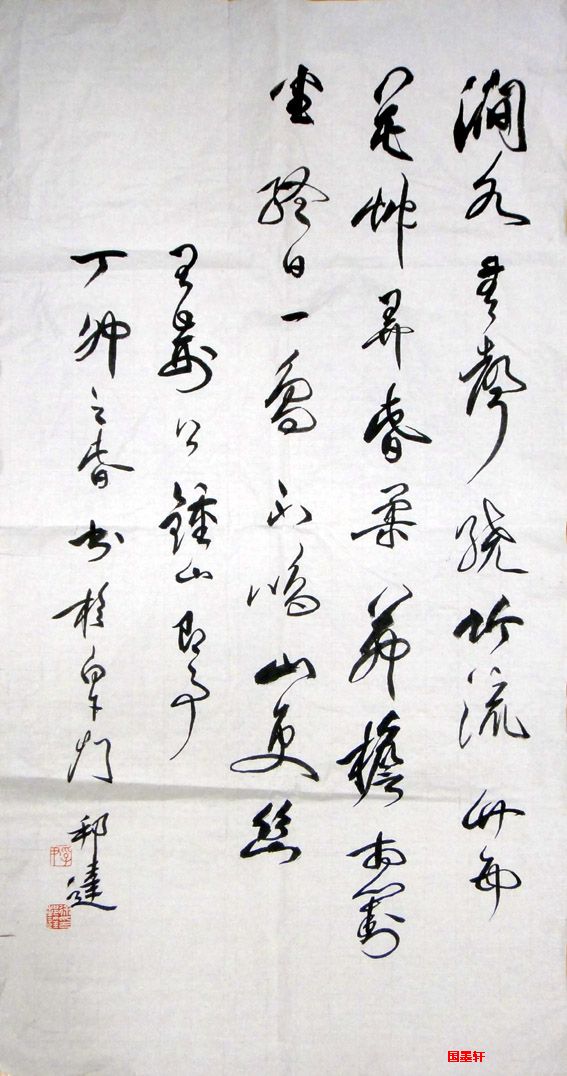 澗水無聲繞竹流竹西
花艸弄春柔茅檐相對
坐終日一鳥不鳴山更幽
王荊公鍾山即事
丁卯之春書於 邦達
国墨轩